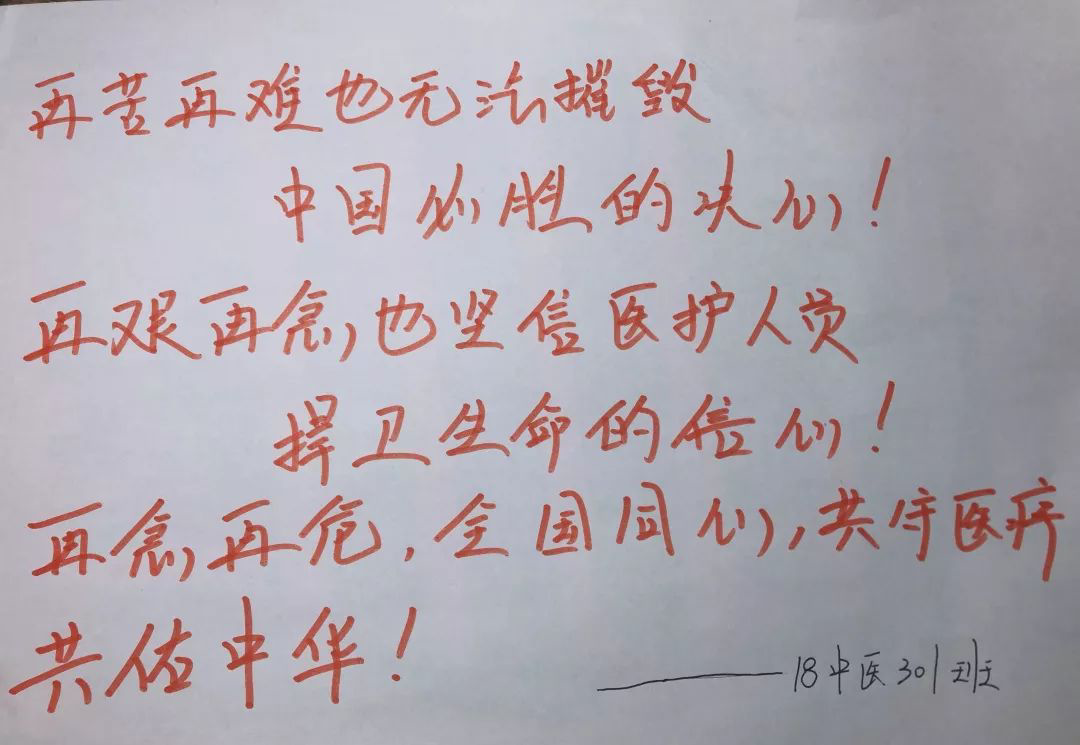 再苦再难也无法摧毁
中国必胜的决心！
再艰再急，也坚信医护人员
捍卫生命的信心！
再急再危，全国同心，共守医疗
共佑中华！
——18中医301班